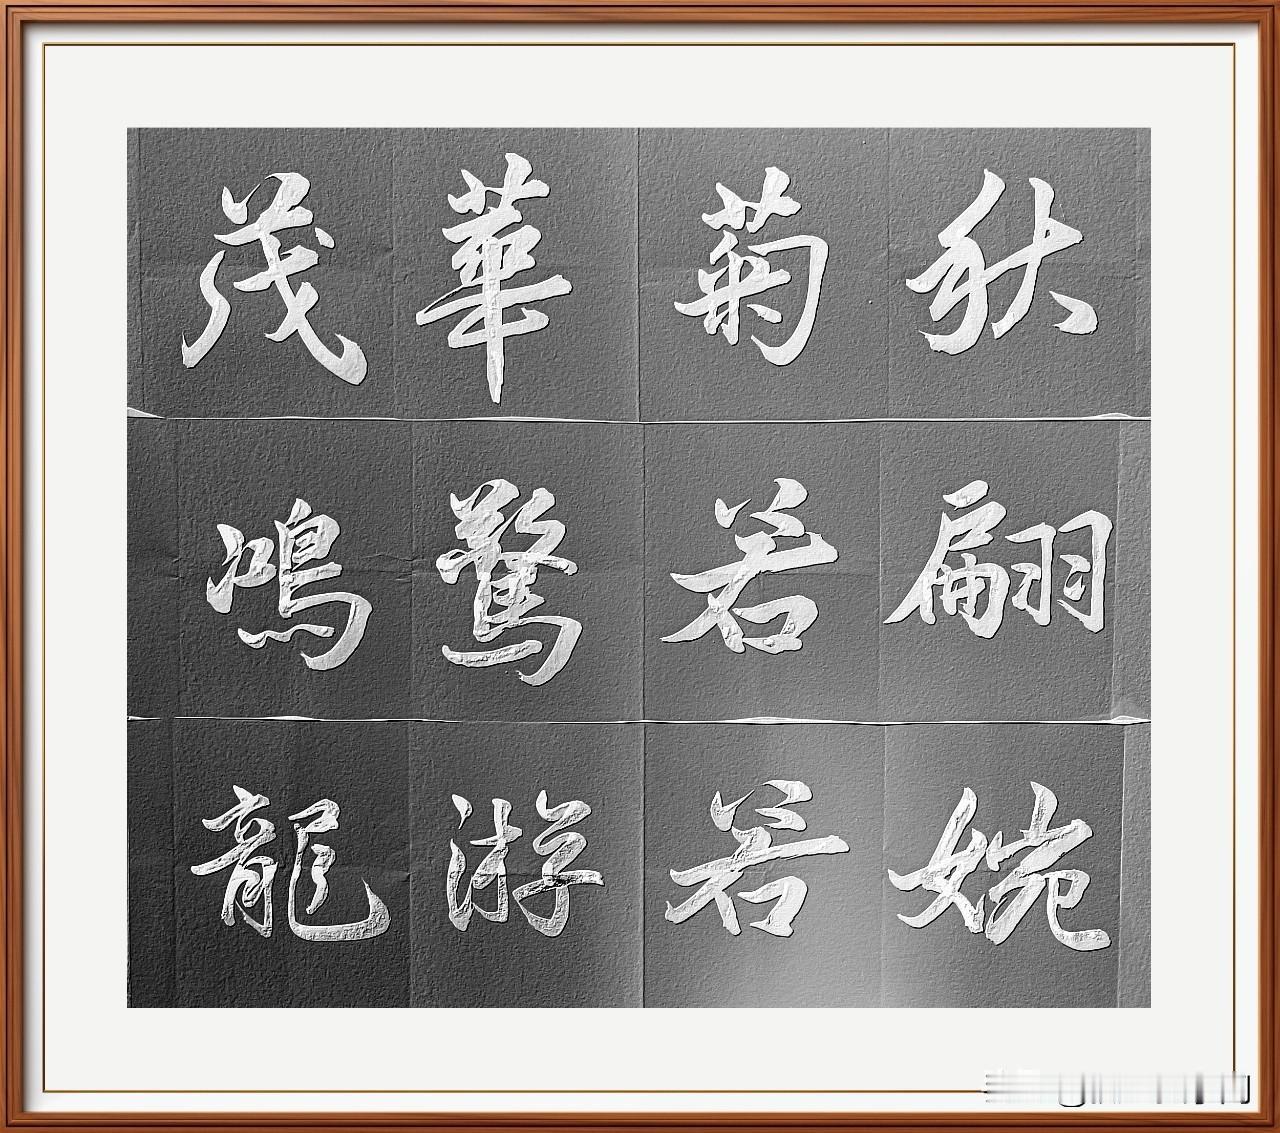 秋菊華茂
翩若驚鴻
婉若游龍